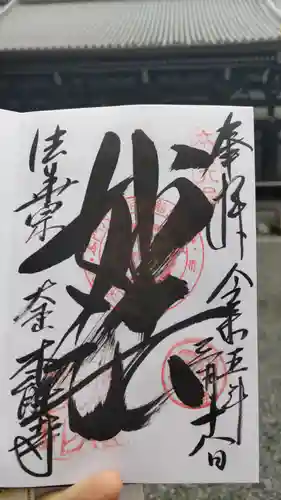 奉拝 令和五年
三月十八日
妙法
法華宗
本能寺